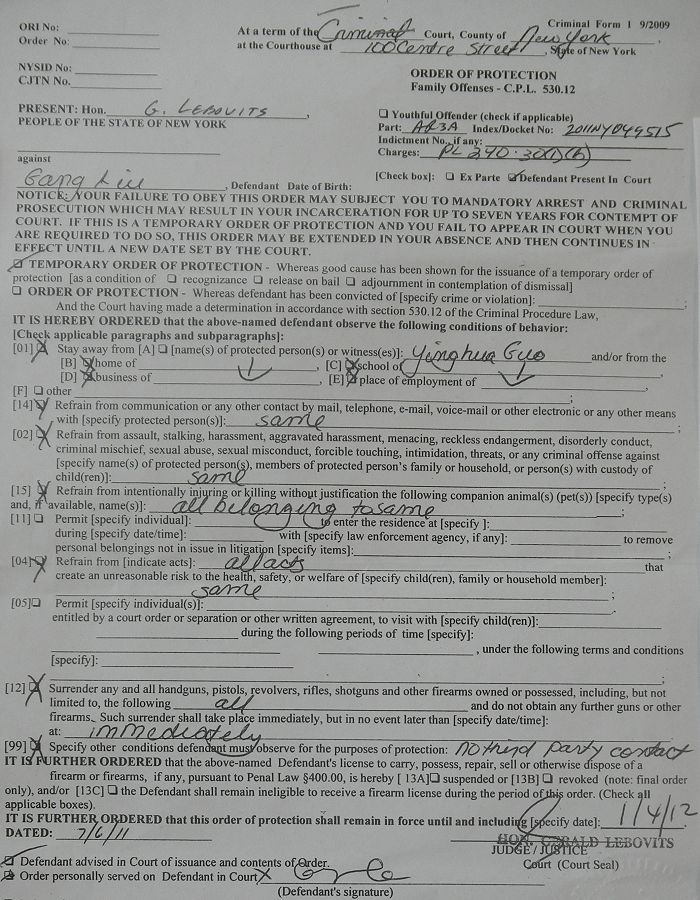 ORI No:
Order No:
At a term of the Criminal Court, County of New York,
at the Courthouse at 100 Centre Street, State of New York
Criminal Form 1 9/2009
NYSID No:
CJTN No.
ORDER OF PROTECTION
Family Offenses - C.P.L. 530.12
PRESENT: Hon. G. LEBOVITS,
PEOPLE OF THE STATE OF NEW YORK
❑ Youthful Offender (check if applicable)
Part: AR3A Index/Docket No: 2011NY049515
Indictment No., if any:
Charges: PL 240.30(1)(b)
against
Gang Liu, Defendant Date of Birth:
[Check box]: ❑ Ex Parte ☑ Defendant Present In Court
NOTICE: YOUR FAILURE TO OBEY THIS ORDER MAY SUBJECT YOU TO MANDATORY ARREST AND CRIMINAL
PROSECUTION WHICH MAY RESULT IN YOUR INCARCERATION FOR UP TO SEVEN YEARS FOR CONTEMPT OF
COURT. IF THIS IS A TEMPORARY ORDER OF PROTECTION AND YOU FAIL TO APPEAR IN COURT WHEN YOU
ARE REQUIRED TO DO SO, THIS ORDER MAY BE EXTENDED IN YOUR ABSENCE AND THEN CONTINUES IN
EFFECT UNTIL A NEW DATE SET BY THE COURT.
☑ TEMPORARY ORDER OF PROTECTION - Whereas good cause has been shown for the issuance of a temporary order of
protection [as a condition of ❑ recognizance ❑ release on bail ❑ adjournment in contemplation of dismissal]
❑ ORDER OF PROTECTION - Whereas defendant has been convicted of [specify crime or violation]:
And the Court having made a determination in accordance with section 530.12 of the Criminal Procedure Law,
IT IS HEREBY ORDERED that the above-named defendant observe the following conditions of behavior:
[Check applicable paragraphs and subparagraphs]:
[01] ☒ Stay away from [A] ❑ [name(s) of protected person(s) or witness(es)]: Yinghua Guo and/or from the
[B] ☒ home of , [C] ☒ school of
[D] ☒ business of , [E] ☒ place of employment of
[F] ❑ other ;
[14] ☒ Refrain from communication or any other contact by mail, telephone, e-mail, voice-mail or other electronic or any other means
with [specify protected person(s)]: same ;
[02] ☒ Refrain from assault, stalking, harassment, aggravated harassment, menacing, reckless endangerment, disorderly conduct,
criminal mischief, sexual abuse, sexual misconduct, forcible touching, intimidation, threats, or any criminal offense against
[specify name(s) of protected person(s), members of protected person's family or household, or person(s) with custody of
child(ren)]: same ;
[15] ☒ Refrain from intentionally injuring or killing without justification the following companion animal(s) (pet(s)) [specify type(s)
and, if available, name(s)]: all belonging to same ;
[11] ❑ Permit [specify individual]: to enter the residence at [specify ]:
during [specify date/time]: with [specify law enforcement agency, if any]: to remove
personal belongings not in issue in litigation [specify items]: ;
[04] ☒ Refrain from [indicate acts]: all acts that
create an unreasonable risk to the health, safety, or welfare of [specify child(ren), family or household member]:
same ;
[05] ❑ Permit [specify individual(s)]: ;
entitled by a court order or separation or other written agreement, to visit with [specify child(ren)]:
during the following periods of time [specify]:
, under the following terms and conditions
[specify]: ;
[12] ☒ Surrender any and all handguns, pistols, revolvers, rifles, shotguns and other firearms owned or possessed, including, but not
limited to, the following all and do not obtain any further guns or other
firearms. Such surrender shall take place immediately, but in no event later than [specify date/time]:
at: immediately
[99] ☒ Specify other conditions defendant must observe for the purposes of protection: No third party contact
IT IS FURTHER ORDERED that the above-named Defendant's license to carry, possess, repair, sell or otherwise dispose of a
firearm or firearms, if any, pursuant to Penal Law §400.00, is hereby [ 13A]❑ suspended or [13B] ❑ revoked (note: final order
only), and/or [13C] ❑ the Defendant shall remain ineligible to receive a firearm license during the period of this order. (Check all
applicable boxes).
IT IS FURTHER ORDERED that this order of protection shall remain in force until and including [specify date]: 1/4/12
DATED: 7/6/11
HON. GERALD LEBOVITS
JUDGE / JUSTICE
Court (Court Seal)
☑ Defendant advised in Court of issuance and contents of Order.
☑ Order personally served on Defendant in Court X
(Defendant's signature)